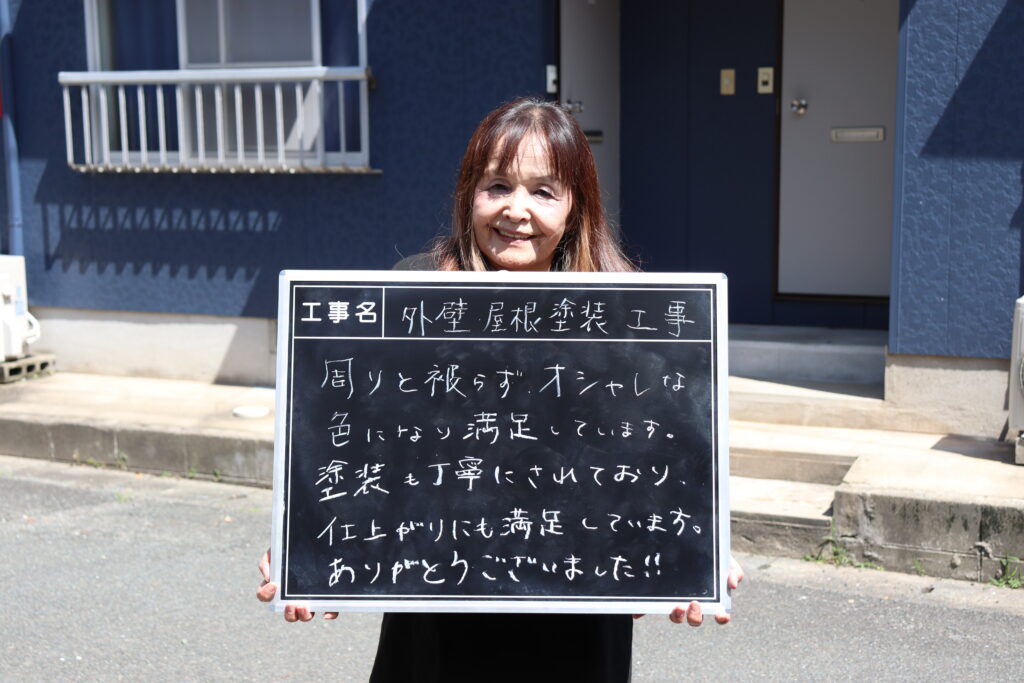 工事名 外壁・屋根塗装工事
周りと被らず、オシャレな
色になり満足しています。
塗装も丁寧にされており、
仕上がりにも満足しています。
ありがとうございました!!